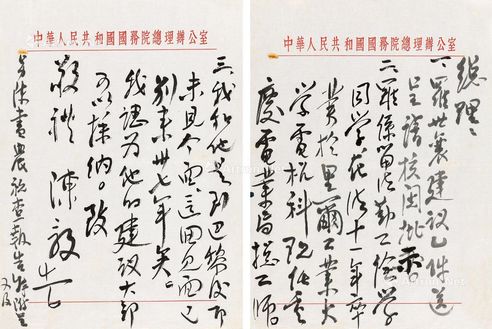 中華人民共和國國務院總理辦公室
總理：
一、羅世襄建議乙件送
呈請核閱批示。
二、羅係留法勤工儉學
同學在法十一年畢
業於里爾工業大
學電機科現任重
慶電業局總工師。
中華人民共和國國務院總理辦公室
三、我和他是到巴黎後即
未見个面，這回見面已
別來卅七年矣。
我認為他的建議大部
可以採納。致
敬禮 陳毅
陳書農 查報告 呈
又及